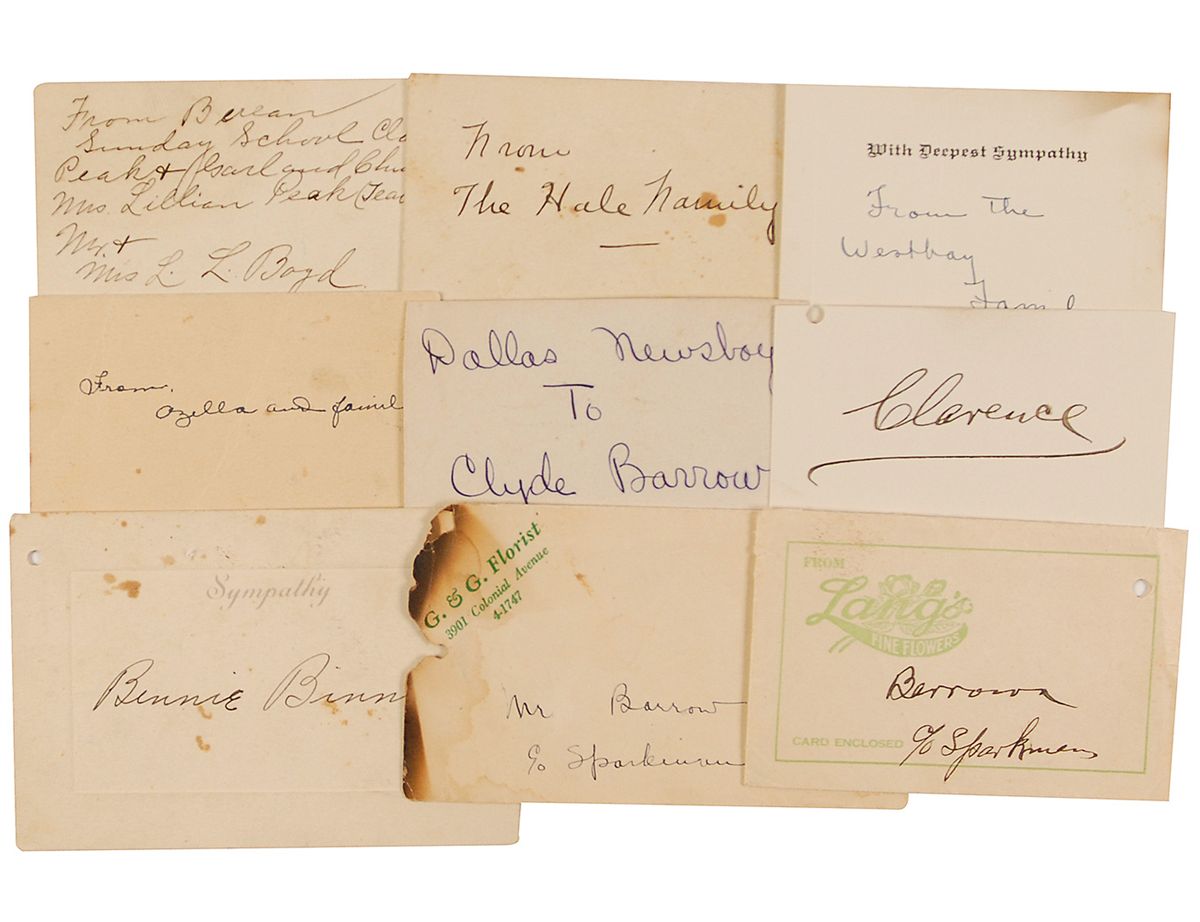 From Berean
Sunday School
Peak & Garland
Mrs. Lillian Peak
Mr. +
Mrs L. L. Boyd
From
The Hale Family
With Deepest Sympathy
From The
Westbay
From,
Ozella and famil
Dallas Newsboy
To
Clyde Barrow
Clarence
Sympathy
Bennie Binn
G. & G. Florist
3901 Colonial Avenue
4-1747
Mr Barrow
c/o Sparkman
FROM
Lang's
FINE FLOWERS
Barrow
CARD ENCLOSED
c/o Sparkman